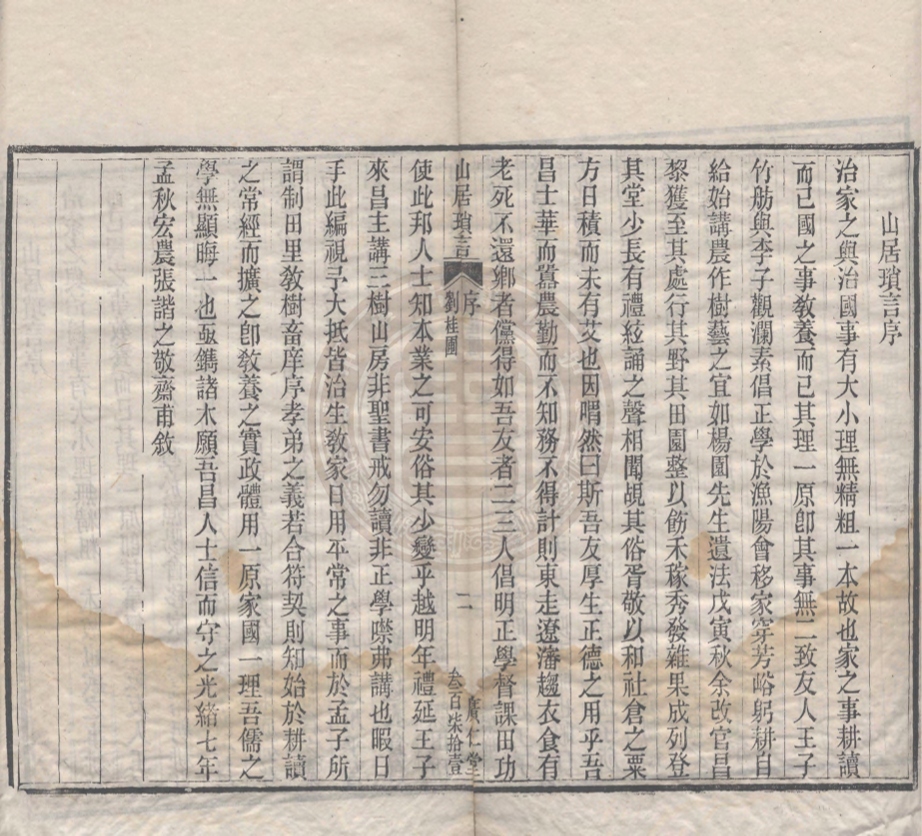 山居瑣言序
治家之與治國事有大小理無精粗一本故也家之事耕讀
而已國之事教養而已其理一原卽其事無二致友人王子
竹舫與李子觀瀾素倡正學於漁陽會移家穿芳峪躬耕自
給始講農作樹藝之宜如楊園先生遺法戊寅秋余改官昌
黎獲至其處行其野其田園整以飭禾稼秀發雜果成列登
其堂少長有禮絃誦之聲相聞覘其俗胥敬以和社倉之粟
方日積而未有艾也因喟然曰斯吾友厚生正德之用乎吾
昌士華而囂農勤而不知務不得計則東走遼瀋趨衣食有
老死不還鄉者儻得如吾友者二三人倡明正學督課田功
山居瑣言
序
劉桂團
二
廣仁堂
叁百柒拾壹
使此邦人士知本業之可安俗其少變乎越明年禮延王子
來昌主講三樹山房非聖書戒勿讀非正學噤弗講也暇日
手此編視予大抵皆治生教家日用平常之事而於孟子所
謂制田里教樹畜庠序孝弟之義若合符契則知始於耕讀
之常經而擴之卽教養之實政體用一原家國一理吾儒之
學無顯晦一也亟鐫諸木願吾昌人士信而守之光緒七年
孟秋宏農張諧之敬齋甫敘